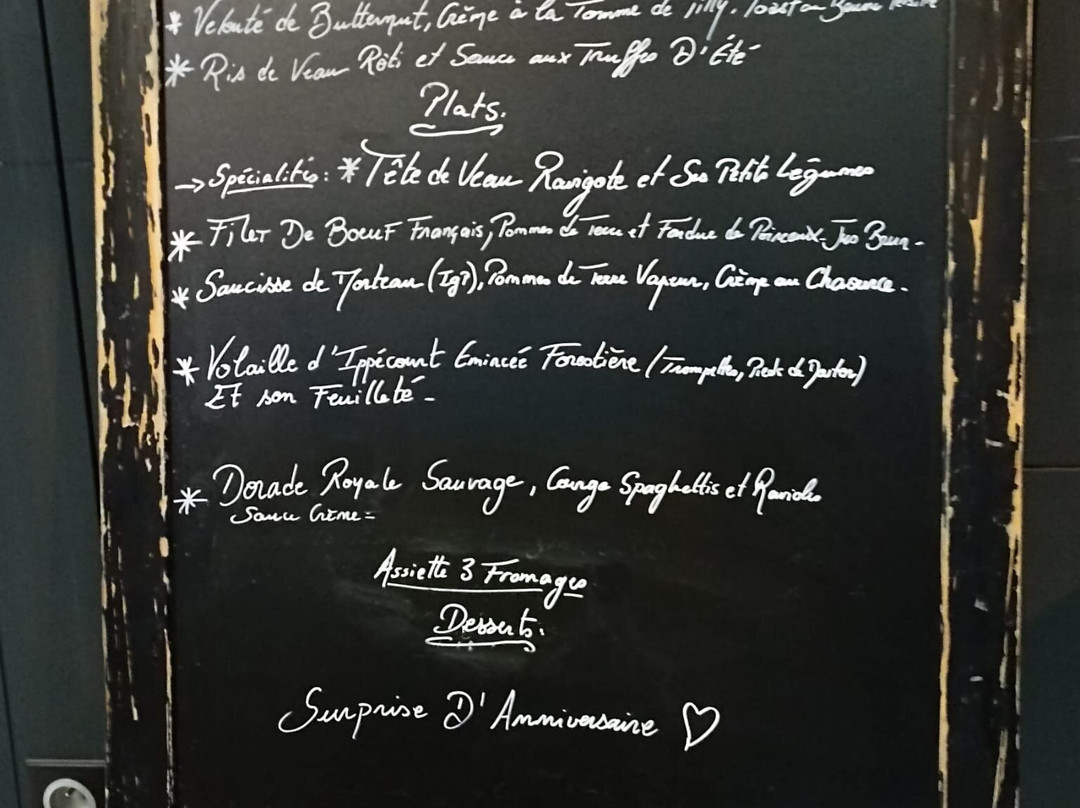 * Velouté de Butternut, Crème à la Tomme de Jilly. Toast au
* Ris de Veau Rôti et Sauce aux Truffes D'Été
Plats.
→ Spécialités : * Tête de Veau Ravigote et Ses Petits Légumes
* Filet De Boeuf Français, Pommes de Terre et Fondue de Poireaux - Jus Brun -
* Saucisse de Morteau (Igp), Pommes de Terre Vapeur, Crème au Chaource -
* Volaille d'Ippécourt Emincée Forestière (Trompettes, Pieds de Mouton)
Et son Feuilleté -
* Dorade Royale Sauvage, Courge Spaghettis et Ravioles
Sauce Crème -
Assiette 3 Fromages
Desserts.
Surprise D'Anniversaire ♡